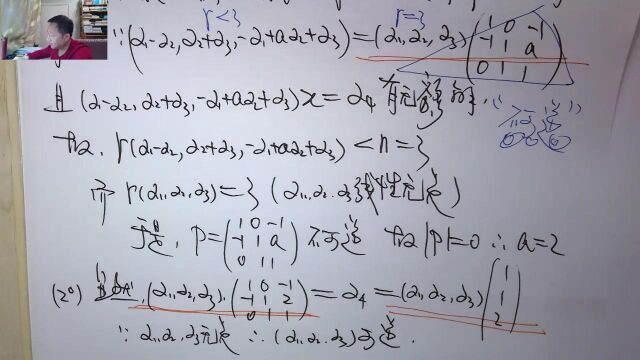 r<3 r=3
∵(α₁-α₂, α₂+α₃, -α₁+aα₂+α₃)=(α₁,α₂,α₃)(1 0 -1; -1 1 a; 0 1 1)
且(α₁-α₂, α₂+α₃, -α₁+aα₂+α₃)x=α₄有无穷解
故, r(α₁-α₂, α₂+α₃, -α₁+aα₂+α₃)<n=3
而 r(α₁,α₂,α₃)=3(α₁,α₂,α₃线性无关)
于是, P=(1 0 -1; -1 1 a; 0 1 1)不可逆 故|P|=0 ∴a=2
(2°) (α₁,α₂,α₃)·(1 0 -1; -1 1 2; 0 1 1)=α₄=(α₁,α₂,α₃)(1; 1; 2)
∵α₁,α₂,α₃无关 ∴(α₁,α₂,α₃)可逆.